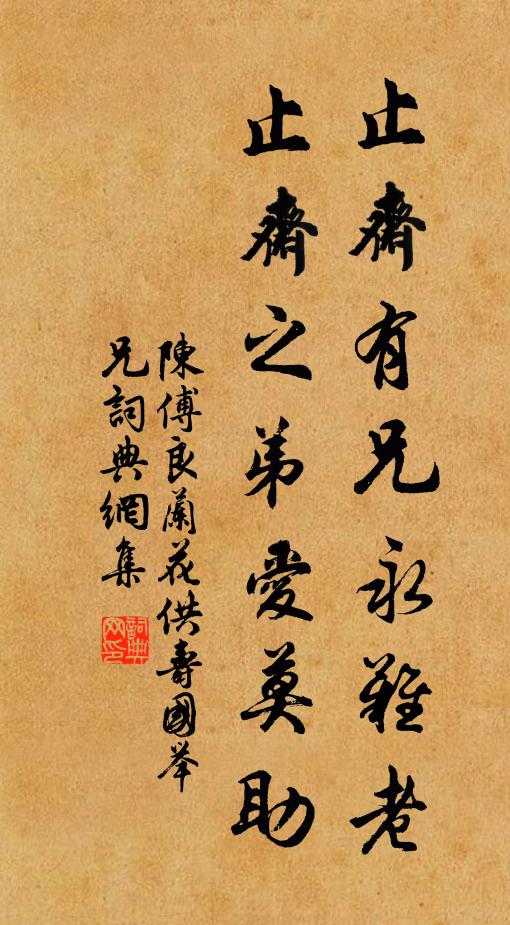 止齋有兄永難老
止齋之弟愛莫助
陳傅良蘭花供壽國举
兄詞典網集
詞典
网印